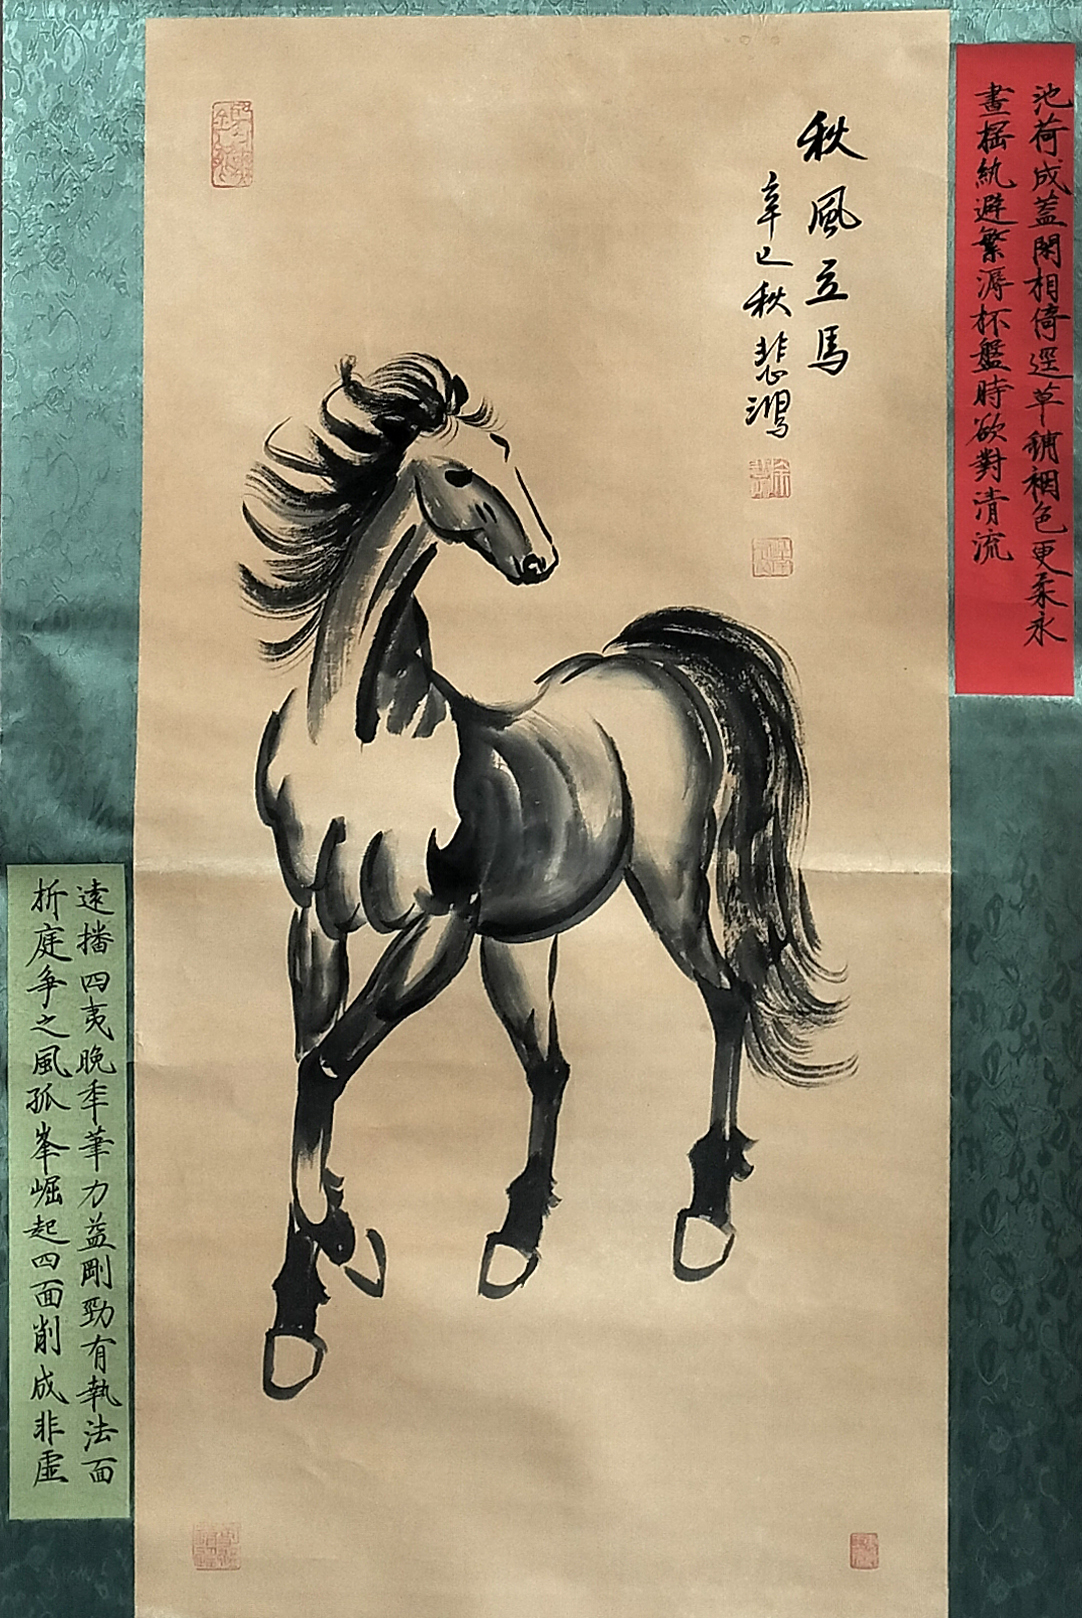 秋風立馬
辛巳秋悲鴻
池荷成蓋閑相倚逕草鋪裀色更柔永
晝揺紈避繁溽杯盤時欲對清流
遠播四夷晚年筆力益剛勁有執法面
折庭争之風孤峯崛起四面削成非虛